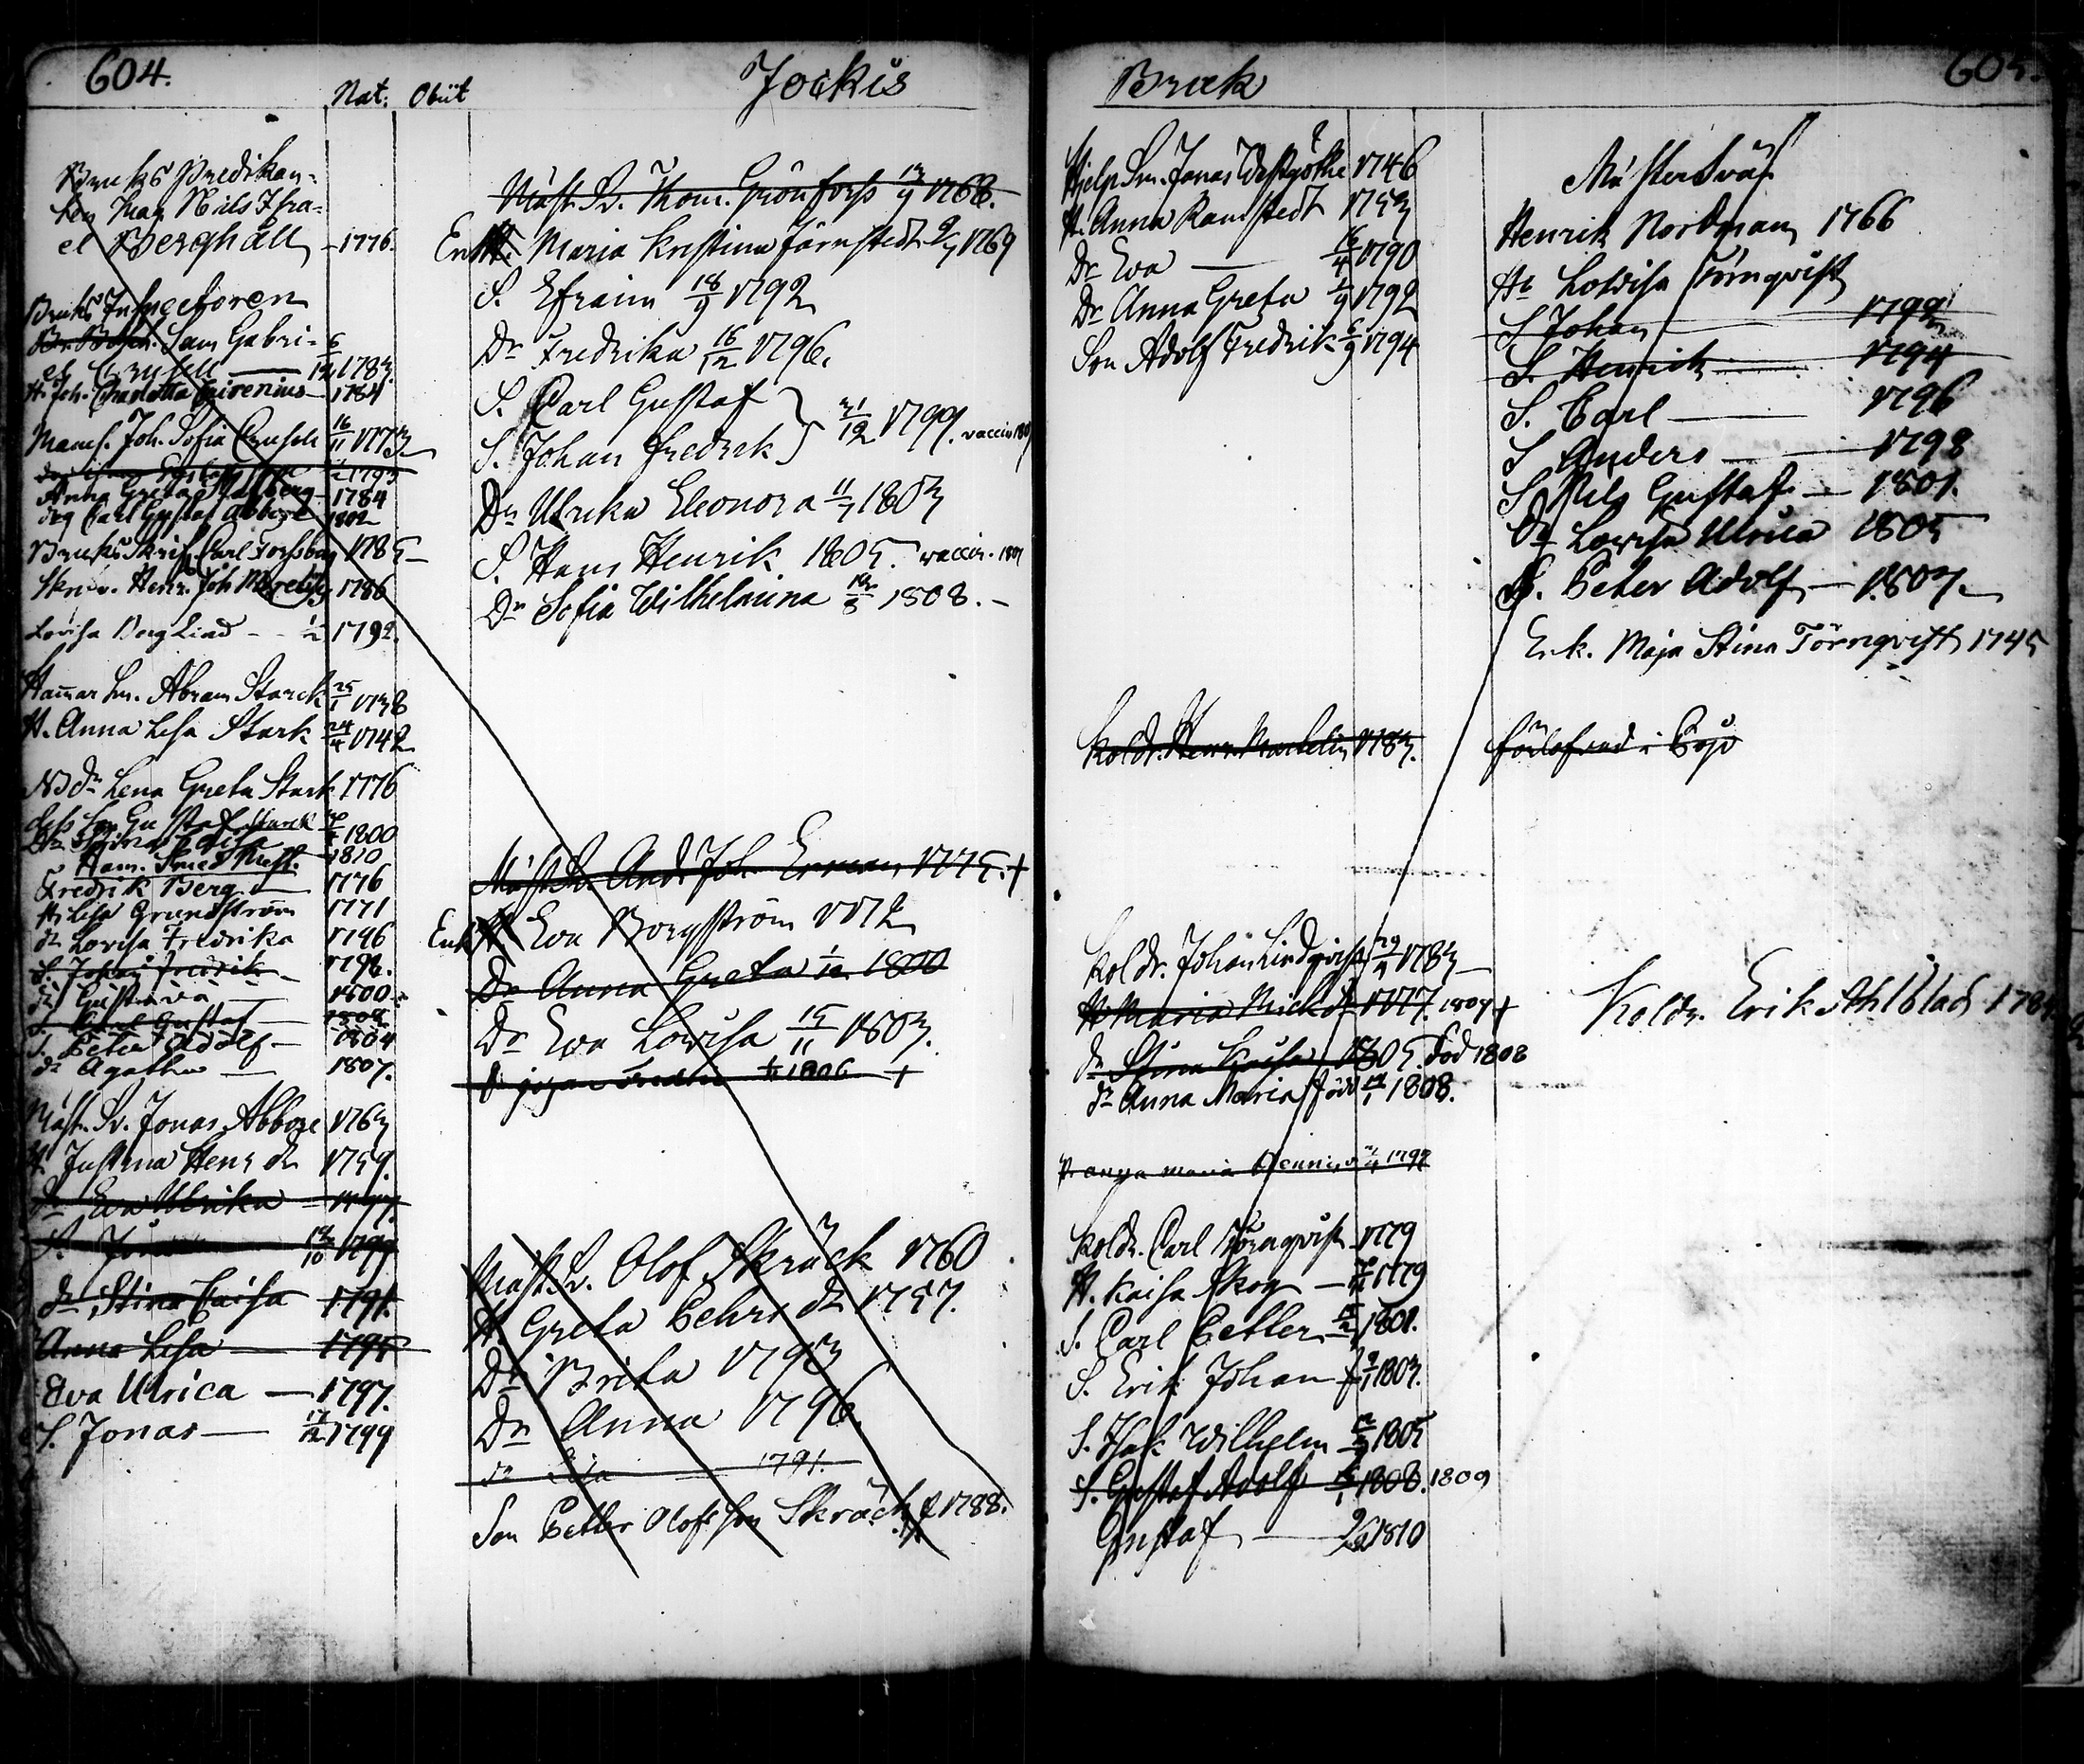 604.
Nat. Obiit
Jockis
Bruks Predikan-
ten Mag Nils Isra-
el Berghäll - 1776.
Bruks Inspectoren
Sam Gabri-
el 6/12 1783
H. Joh. Charlotta 1784
Mams. Joh. Sofia 16/11 1773
Anna Greta 1784
Carl Gustaf Abbore 1802
Bruks Skrif. Carl Forssberg 1785
Skriv. Henr. Joh 1786
Lovisa Berglind - - 1/2 1792.
Hammar Sm. Abram Starck 25/1 1738
H. Anna Lisa Stark 24/4 1742
Dr Lena Greta Stark 1776
Gustaf Starck 1800
1810
Ham. Smed Mäst.
Fredrik Berg 1776
H. Lisa Grundström 1771
dr Lovisa Fredrika 1796
S. Johan Fredrik 1798.
dr Gustava 1800
S. Carl Gustaf 1802
S. Peter Adolf 1804
dr Agatha 1807.
Mäst. Sv. Jonas Abbore 1763
H. Justina Henr dr 1759.
dr Eva Ulrika
S. Jonas 1799
dr Stina Caisa 1791.
Anna Lisa 1795
Eva Ulrica 1797.
S. Jonas 17/12 1799
Mäst. Sv. Thom. Grönforss 13/9 1768.
Enk. H. Maria Kristina Järnstedt 9/7 1769
S. Efraim 18/9 1792
Dr Fredrika 16/12 1796.
S. Carl Gustaf
S. Johan Fredrek } 31/12 1799.
Dr Ulrika Eleonora 11/7 1803
S. Hans Henrik 1805. vaccin.
Dr Sofia Wilhelmina 1808. -
Mäst Sv. And. Joh. Erman 1775. +
Enk. H. Eva Borgström 1772
Dr Anna Greta 1/10 1800
Dr Eva Lovisa 15/11 1803.
1806 +
Mäst. Sv. Olof Skräck 1760
H. Greta Pehrs dr 1757.
Dr Brita 1793
Dr Anna 1796
dr 1791.
Son Petter Olofsson Skräck f 1788.
Bruk
605.
Hjelp Sm. Jonas Westgöthe 1746
H. Anna Randstedt 1753
Dr Eva 16/4 1790
Dr Anna Greta 1792
Son Adolf Fredrik 6/9 1794
Koldr. Henr. Martelin 1783.
Koldr. Johan Lindqvist 29/4 1783
H Maria 1777. 1807 +
dr Stina Kaisa 1805. död 1808
dr Anna Maria född 1808.
P. anna maria 1792
Koldr. Carl Törnqvist 1779
H. Kaisa Skog 1779
S. Carl Petter 1801.
S. Erik Johan f 1803.
S. Isak Wilhelm 1805
S. Gustaf Adolf 1808. 1809
Gustaf 9/2 1810
Mäster Sv
Henrik Nordman 1766
H Lovisa Törnqvist
S Johan 1792
S. Henrik 1794
S. Carl 1796
S Anders 1798
S Nils Gustaf 1801.
Dr Lovisa Ulrica 1805
S. Peter Adolf 1807.
Enk. Maja Stina Törnqvist 1745
förlofvad i
Koldr. Erik Ahlblad